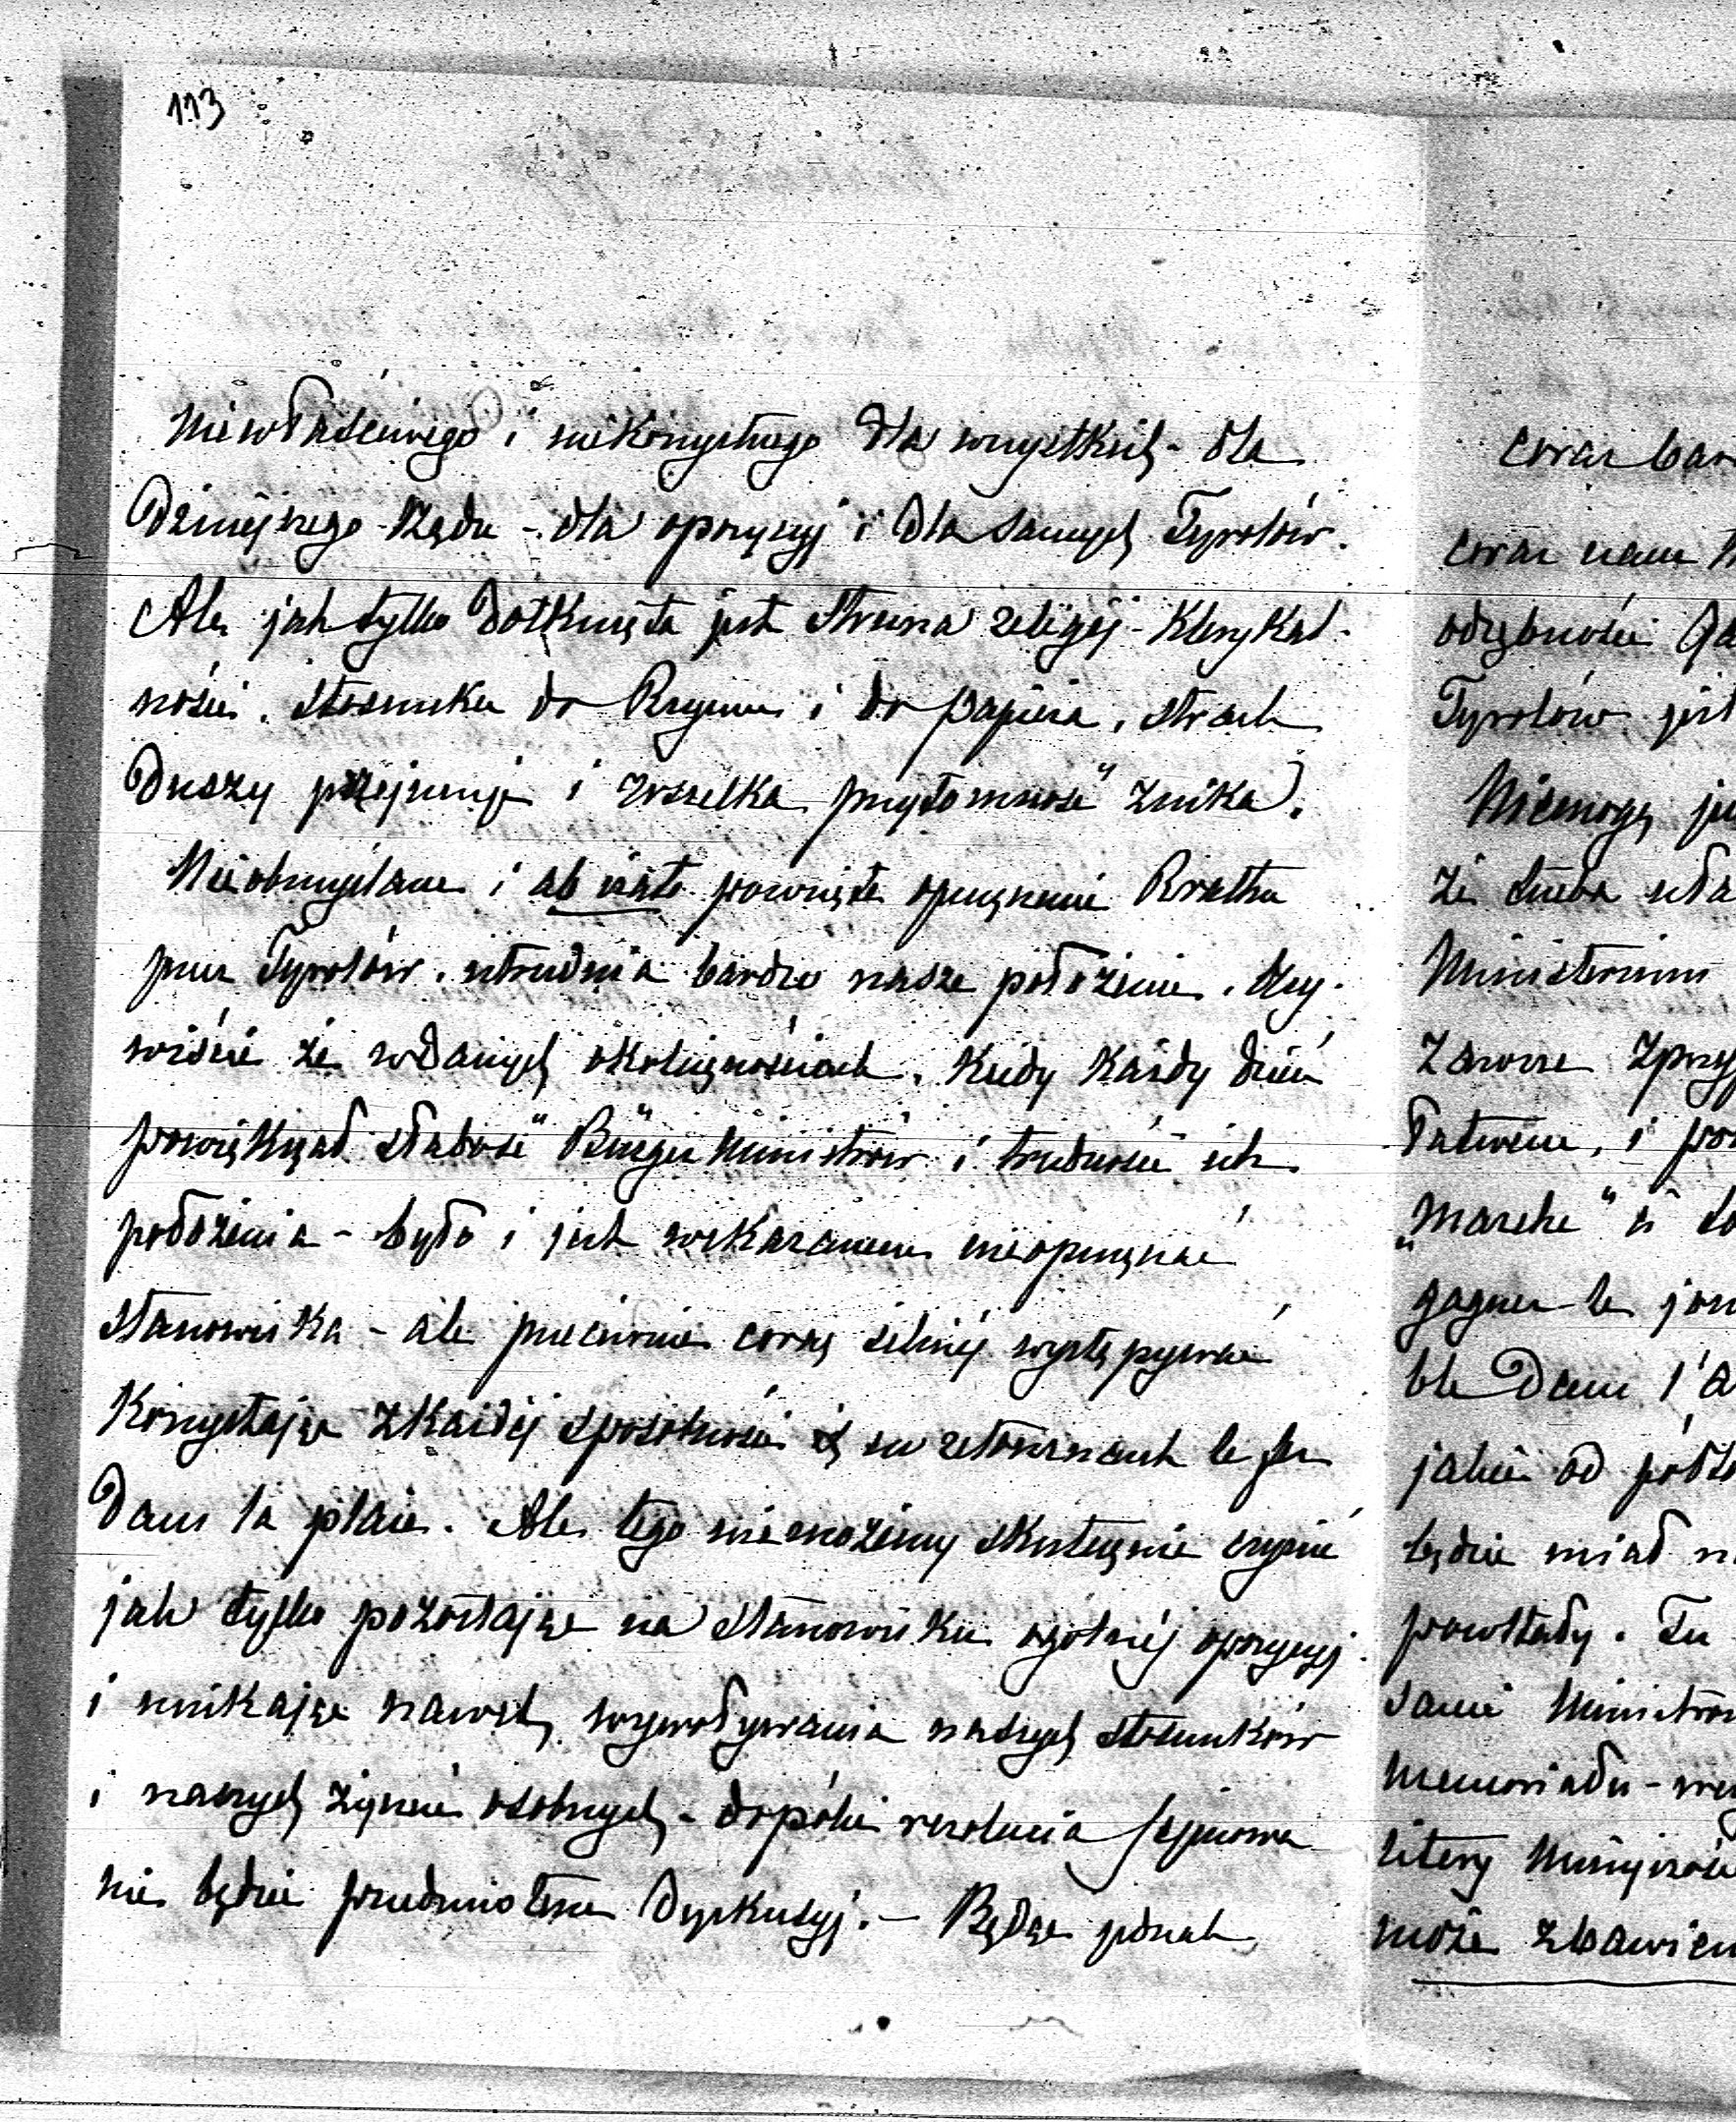 113
niewłaściwego i niekorzystnego dla wszystkich - dla
dzisiejszego rządu - dla opozycyj i dla samych Tyrolów.
Ale jak tylko dotknięta jest struna religij - klerykal-
ności, stosunku do Rzymu i do papieża, strach
duszy przejmuje i wszelka przytomność znika.
Nieobmyślane i ab irato powzięte opuszczenie Rrathu
przez Tyrolów, utrudnia bardzo nasze położenie. Oczy-
wiście że wdanych okolicznościach, kiedy każdy dzień
powiększał słabość Bürger Ministrów i trudność ich
położenia - było i jest wskazanem nieopuszczać
stanowiska - ale przeciwnie coraz silniej występywać
korzystając zkażdej sposobności en retournant le fer
dans la plaie. Ale tego niemożemy skutecznie czynić
jak tylko pozostając na stanowisku ogólnej opozycyj
i unikając nawet wywoływania naszych stosunków
i naszych życzeń osobnych - dopóki rezolucia sejmowa
nie będzie przedmiotem dyskusyj. - Będąc jednak
coraz bar
coraz nam
odrębności Ga
Tyrolów jest
Niemogę ju
że trzeba uda
Ministerium
zawsze zprzy
łatwione, i po
„Marche" à
gagner le jou
ble dans l'a
jakie od
będzie miał n
powstały. Tu
sami Ministro
memoriału -
litery Mniejszości
może zbawien